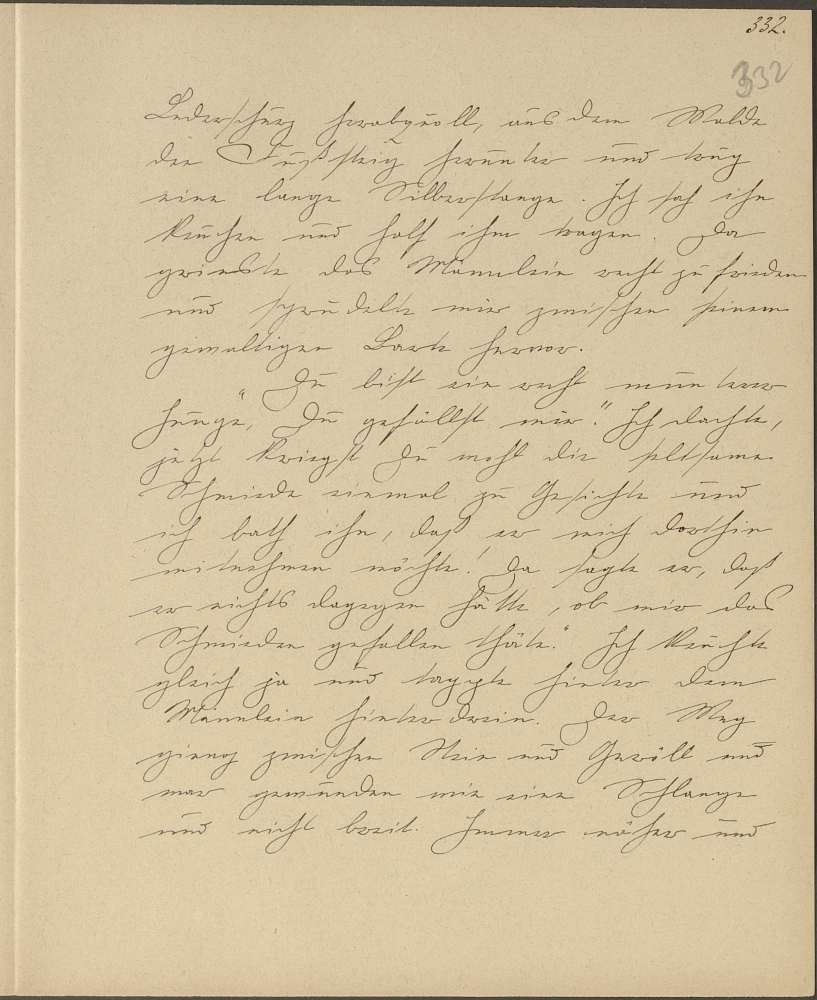 332.
332
Lederschurz herabquoll, aus dem Walde
den Fußsteig herunter und trug
eine lange Silberstange. Ich sah ihn
keuchen und half ihm tragen. Da
grinste das Männlein recht zufrieden
und sprudelte mir zwischen seinem
gewaltigen Barte hervor.
"Du bist ein recht munterer
Junge, Du gefällst mir." Ich dachte,
jetzt kriegst Du wohl die seltsame
Schmiede einmal zu Gesichte und
ich bath ihn, daß er mich dorthin
mitnehmen möchte! Da sagte er, daß
er nichts dagegen hätte, ob mir das
Schmieden gefallen thäte." Ich keuchte
gleich ja und tappte hinter dem
Männlein hinterdrein. Der Weg
gieng zwischen Stein und Geröll und
war gewunden wie eine Schlange
und nicht breit. Immer näher und